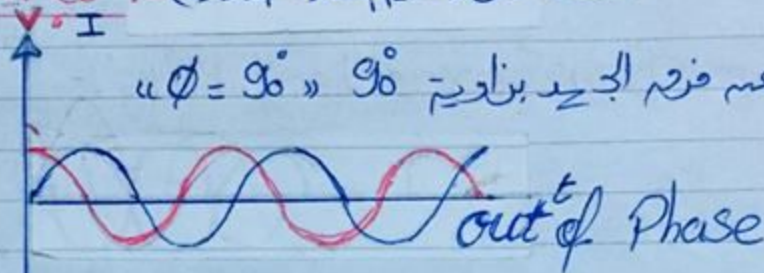 V . I
عن فرق الجهد بزاوية 90° « Ø = 90° »
t
out of Phase